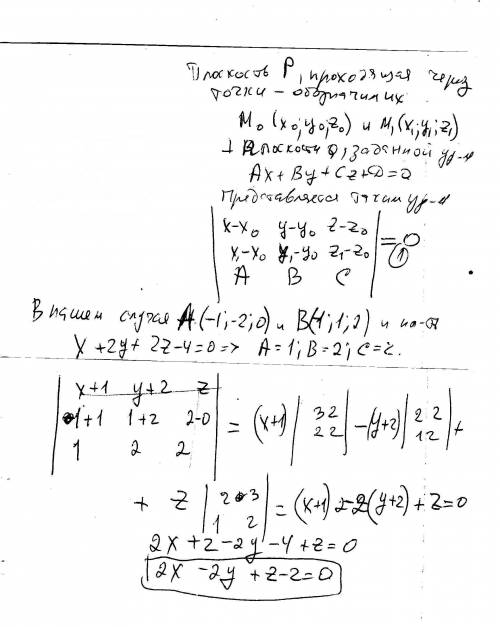 Плоскость P, проходящая через
точки – обозначим их
M₀(x₀;y₀;z₀) и M₁(x₁;y₁;z₁)
⊥ плоскости Q, заданной ур-м
Ax+By+Cz+D=0
Представляется таким ур-м
|x-x₀ y-y₀ z-z₀|
|x₁-x₀ y₁-y₀ z₁-z₀| =0 (1)
|A B C|
В нашем случае A(-1;-2;0) и B(1;1;2) и
x+2y+2z-4=0 => A=1; B=2; C=2.
|x+1 y+2 z|
|1+1 1+2 2-0| = (x+1) |3 2; 2 2| -(y+2) |2 2; 1 2| +
|1 2 2|
+ z |2 3; 1 2| = (x+1)2-2(y+2)+z=0
2x+2-2y-4+z=0
2x-2y+z-2=0